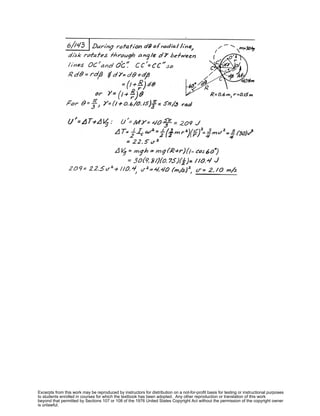 6/143 During rotation dθ of radial line,
disk rotates through angle dγ between
lines OC' and O'C". CC' = CC" so
R dθ = r dβ & dγ = dθ + dβ
= (1 + R/r) dθ
or γ = (1 + R/r) θ
For θ = π/3, γ = (1 + 0.6/0.15) π/3 = 5π/3 rad
m = 30 kg
60°
R
dθ
C
R = 0.6 m, r = 0.15 m
U' = ΔT + ΔVg: U' = Mγ = 40 5π/3 = 209 J
ΔT = ½ Ic ω² = ½ (3/2 mr²)(v/r)² = 3/4 mv² = 3/4 (30) v²
= 22.5 v²
ΔVg = mgh = mg(R+r)(1 - cos 60°)
= 30(9.81)(0.75)(½) = 110.4 J
209 = 22.5 v² + 110.4, v² = 4.40 (m/s)², v = 2.10 m/s
Excerpts from this work may be reproduced by instructors for distribution on a not-for-profit basis for testing or instructional purposes
to students enrolled in courses for which the textbook has been adopted. Any other reproduction or translation of this work
beyond that permitted by Sections 107 or 108 of the 1976 United States Copyright Act without the permission of the copyright owner
is unlawful.